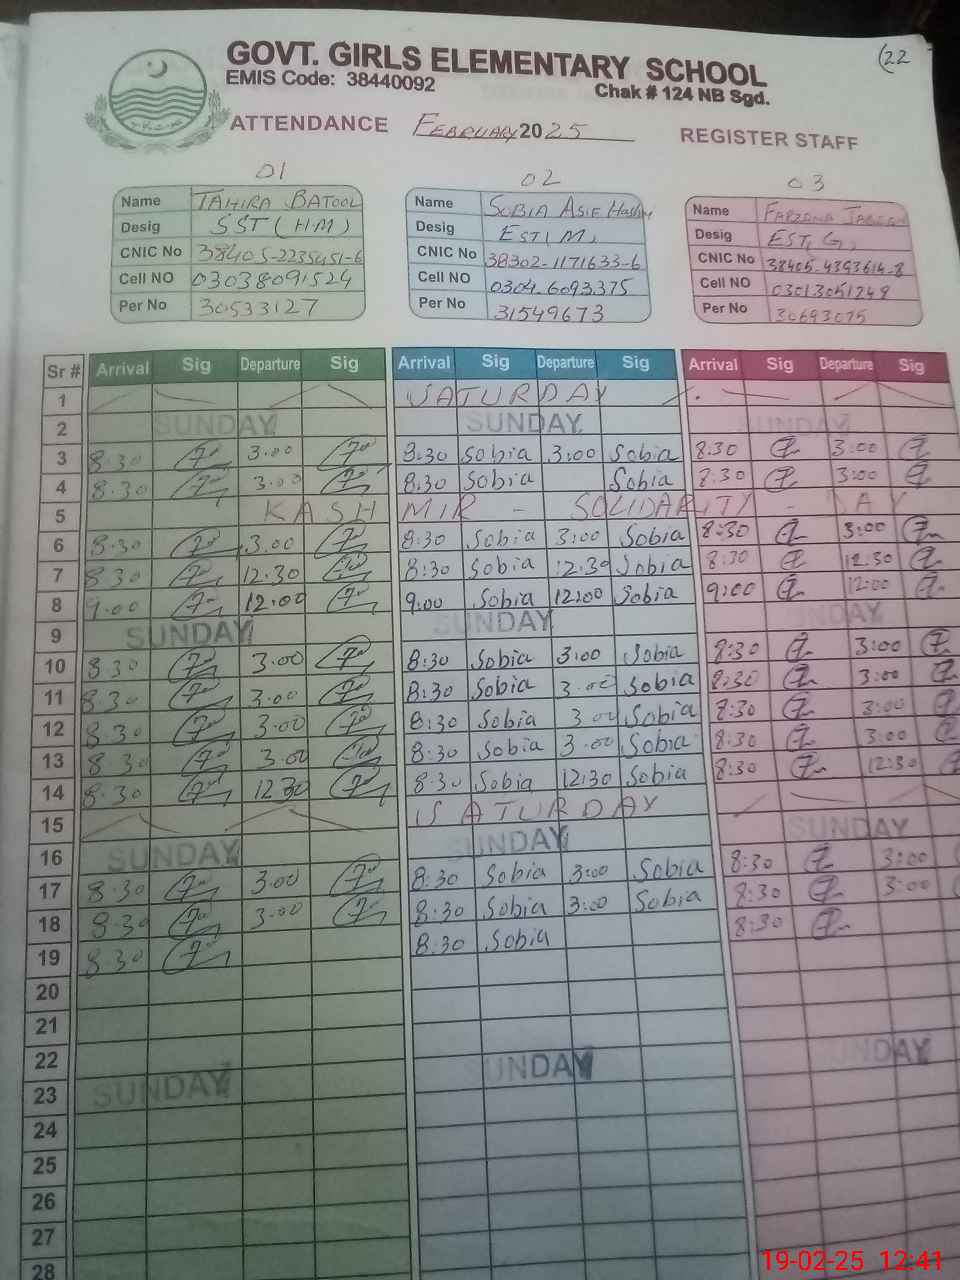 (22
GOVT. GIRLS ELEMENTARY SCHOOL
EMIS Code: 38440092 Chak # 124 NB Sgd.
ATTENDANCE FEBRUARY 2025 REGISTER STAFF
01 02 03
Name TAHIRA BATOOL Name SOBIA ASIF Name FARZANA
Desig SST (HM) Desig EST(M) Desig EST(G)
CNIC No CNIC No 38302-1171633-6 CNIC No
Cell NO 03038091524 Cell NO 0304-6093375 Cell NO
Per No 30533127 Per No 31549673 Per No 30693075
Sr # Arrival Sig Departure Sig Arrival Sig Departure Sig Arrival Sig Departure Sig
1 SATURDAY
2 SUNDAY SUNDAY SUNDAY
3 8:30 3:00 8:30 Sobia 3:00 Sobia 8:30 3:00
4 8:30 3:00 8:30 Sobia Sobia 8:30 3:00
5 KASHMIR - SOLIDARITY - DAY
6 8:30 3:00 8:30 Sobia 3:00 Sobia 8:30 3:00
7 8:30 12:30 8:30 Sobia 12:30 Sobia 8:30 12:30
8 9:00 12:00 9:00 Sobia 12:00 Sobia 9:00 12:00
9 SUNDAY UNDAY NDAY
10 8:30 3:00 8:30 Sobia 3:00 Sobia 8:30 3:00
11 8:30 3:00 8:30 Sobia 3:00 Sobia 8:30 3:00
12 8:30 3:00 8:30 Sobia 3:00 Sobia 8:30 3:00
13 8:30 3:00 8:30 Sobia 3:00 Sobia 8:30 3:00
14 8:30 12:30 8:30 Sobia 12:30 Sobia 8:30 12:30
15 SATURDAY
16 SUNDAY SUNDAY SUNDAY
17 8:30 3:00 8:30 Sobia 3:00 Sobia 8:30 3:00
18 8:30 3:00 8:30 Sobia 3:00 Sobia 8:30 3:00
19 8:30 8:30 Sobia 8:30
20
21
22
23 SUNDAY UNDAY UNDAY
24
25
26
27
28
19-02-25 12:41